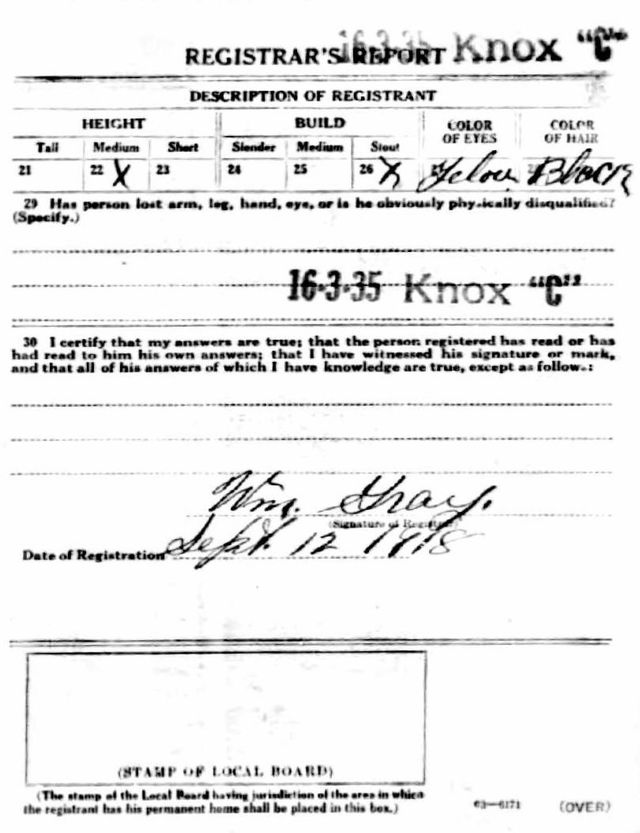 REGISTRAR'S REPORT 16-3-35 Knox "C"
DESCRIPTION OF REGISTRANT
HEIGHT BUILD COLOR OF EYES COLOR OF HAIR
Tall Medium Short Slender Medium Stout
21 22 X 23 24 25 26 X Black
29 Has person lost arm, leg, hand, eye, or is he obviously physically disqualified?
(Specify.)
16-3-35 Knox "C"
30 I certify that my answers are true; that the person registered has read or has
had read to him his own answers; that I have witnessed his signature or mark,
and that all of his answers of which I have knowledge are true, except as follows:
Wm. Gray.
(Signature of Registrar)
Date of Registration Sept. 12 1918
(STAMP OF LOCAL BOARD)
(The stamp of the Local Board having jurisdiction of the area in which
the registrant has his permanent home shall be placed in this box.)
03—6171 (OVER)